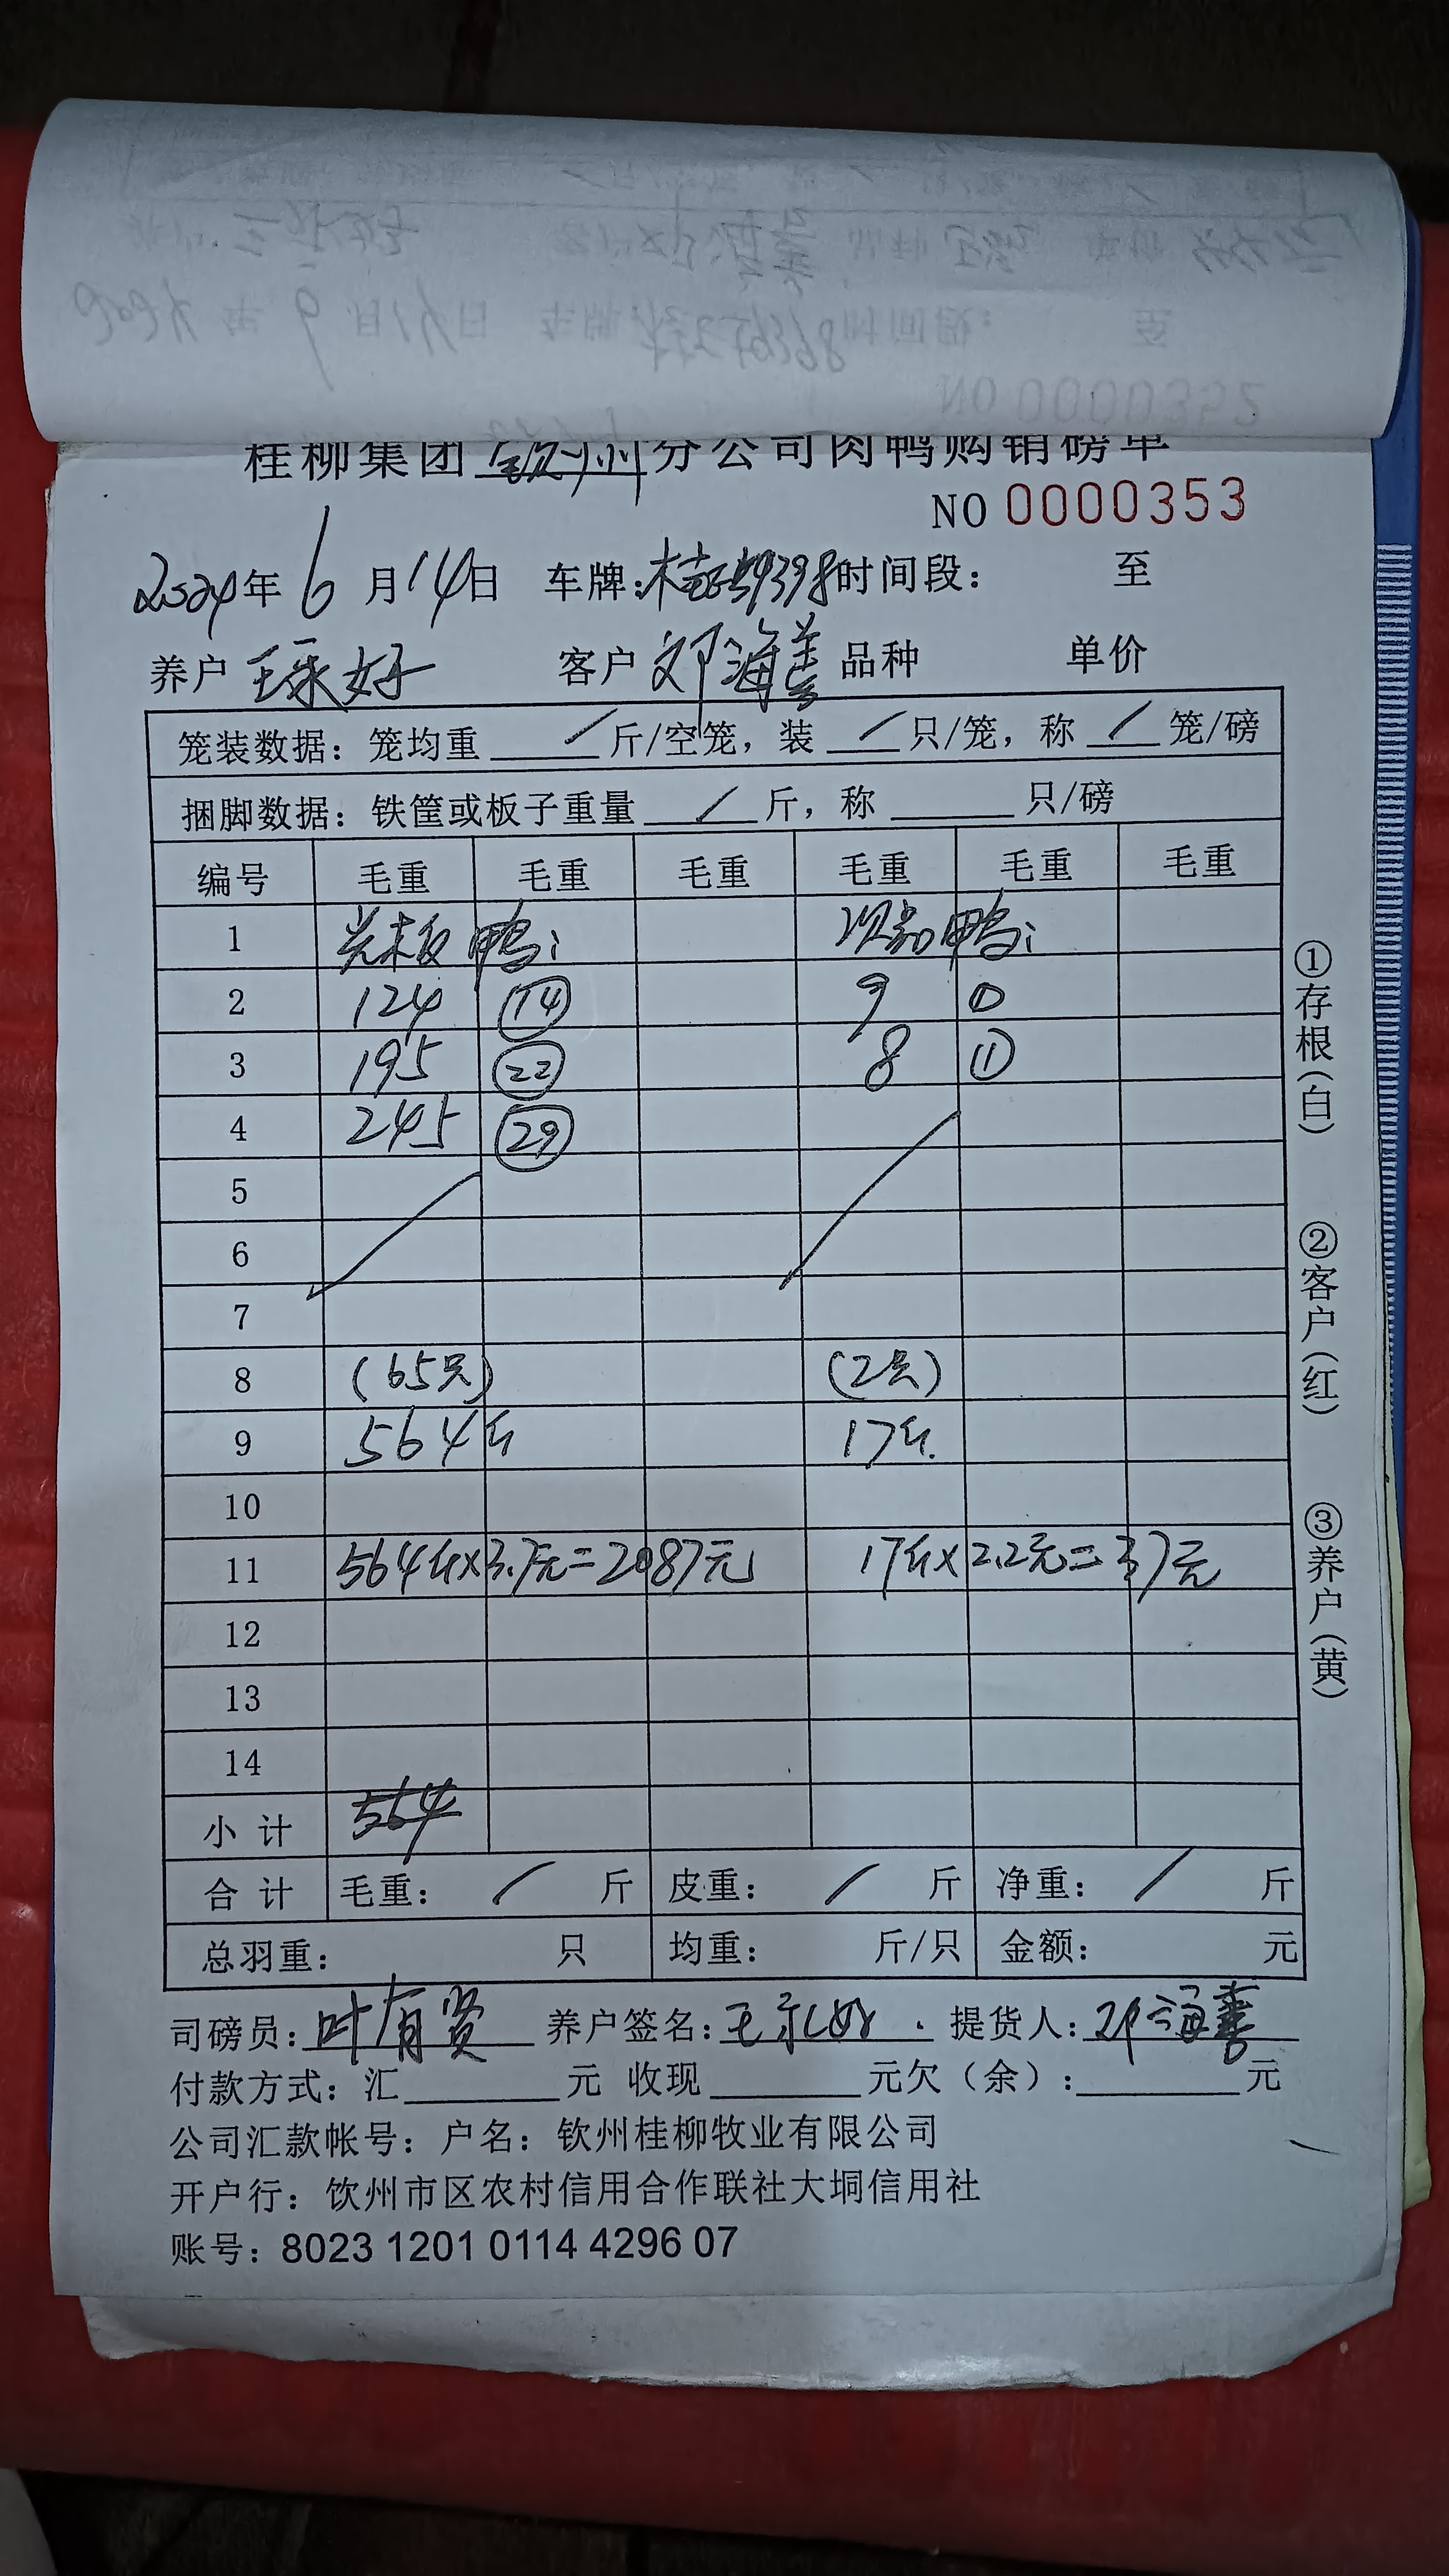 桂柳集团钦州分公司肉鸭购销磅单
NO 0000353
2024年6月14日 车牌: 时间段: 至
养户 王永好 客户 邓海善 品种 单价
笼装数据: 笼均重 / 斤/空笼, 装 / 只/笼, 称 / 笼/磅
捆脚数据: 铁筐或板子重量 / 斤, 称 只/磅
编号 毛重 毛重 毛重 毛重 毛重 毛重
1 鸭: 次品鸭:
2 124 ⑭ 9 ①
3 195 ㉒ 8 ①
4 245 ㉙
5
6
7
8 (65只) (2只)
9 564斤 17斤.
10
11 564斤×3.7元=2087元 17斤×2.2元=37元
12
13
14
小计 564
合计 毛重: / 斤 皮重: / 斤 净重: / 斤
总羽重: 只 均重: 斤/只 金额: 元
司磅员: 叶有贤 养户签名: 王永好 提货人: 邓海善
付款方式: 汇 元 收现 元欠(余): 元
公司汇款帐号: 户名: 钦州桂柳牧业有限公司
开户行: 饮州市区农村信用合作联社大垌信用社
账号: 8023 1201 0114 4296 07
①存根(白)
②客户(红)
③养户(黄)
NO 0000352